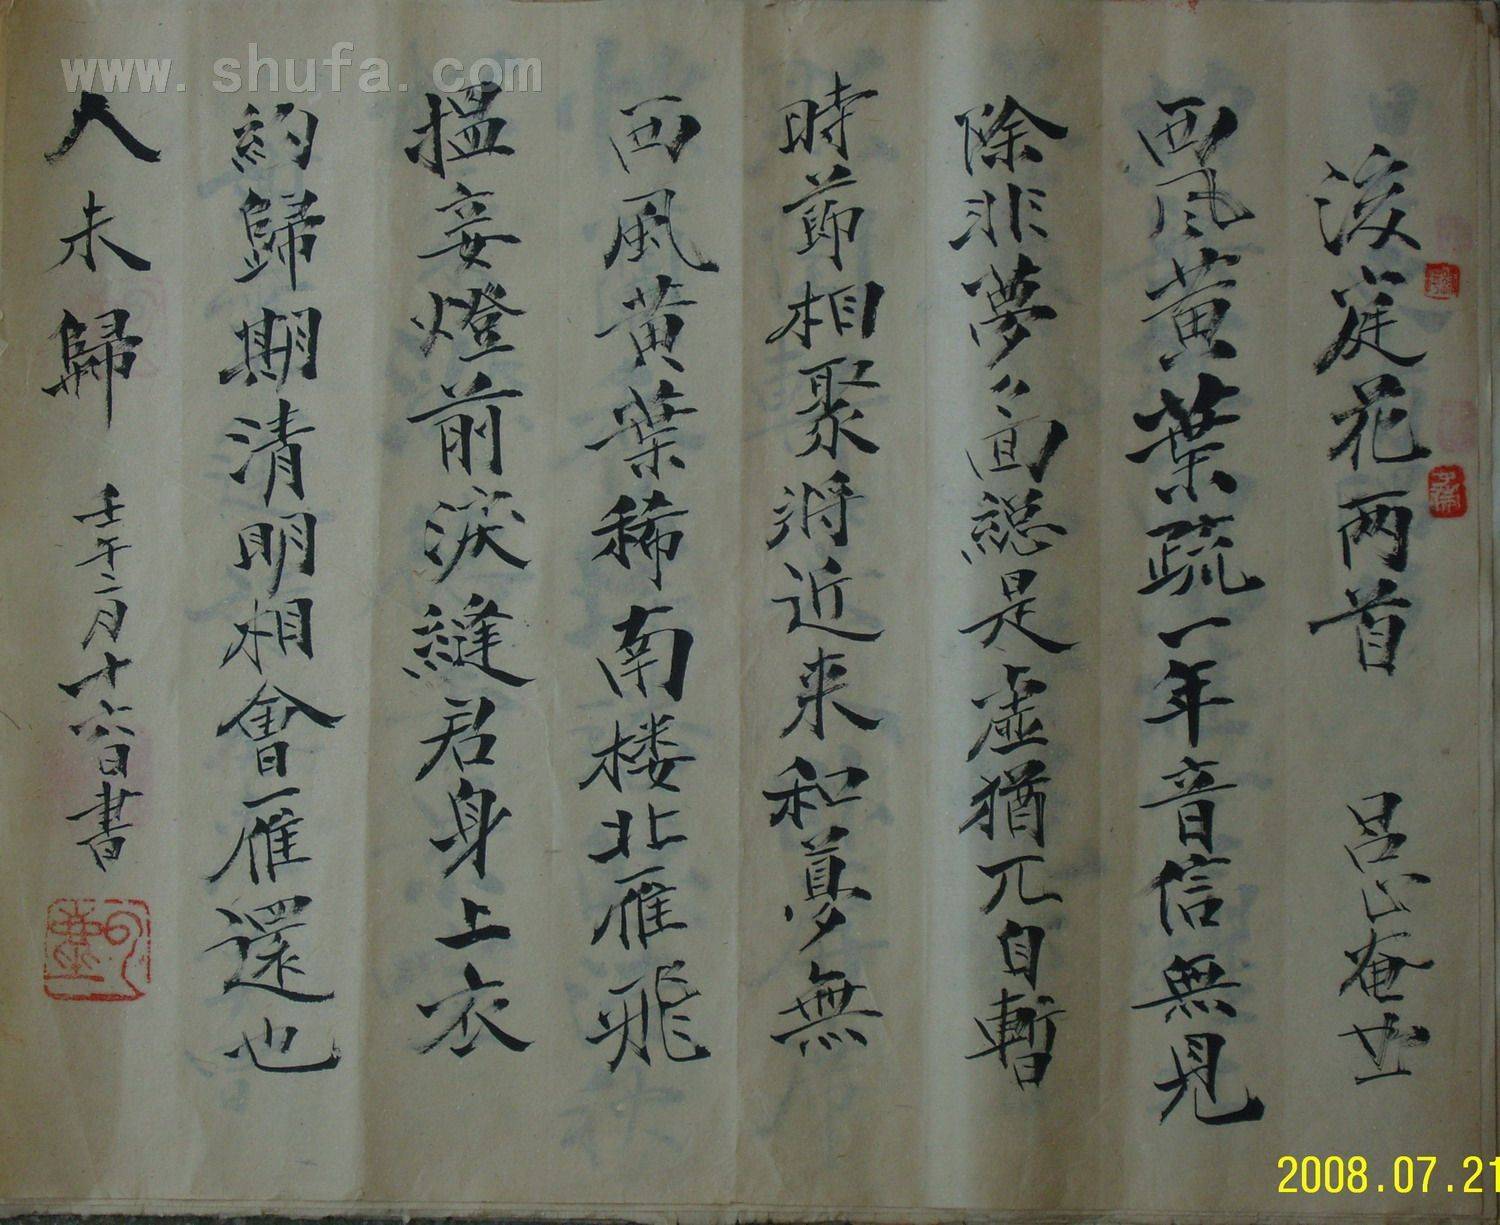 www.shufa.com
後庭花两首 吕止庵世
西风黄葉疏一年音信無見
除非夢〻面総是虚猶兀自暫
時節相聚将近来和夢無
西風黄葉稀南楼北雁飛
揾妾燈前淚縫君身上衣
約歸期清明相會雁還也
人未歸 壬午二月十六日書
2008.07.21